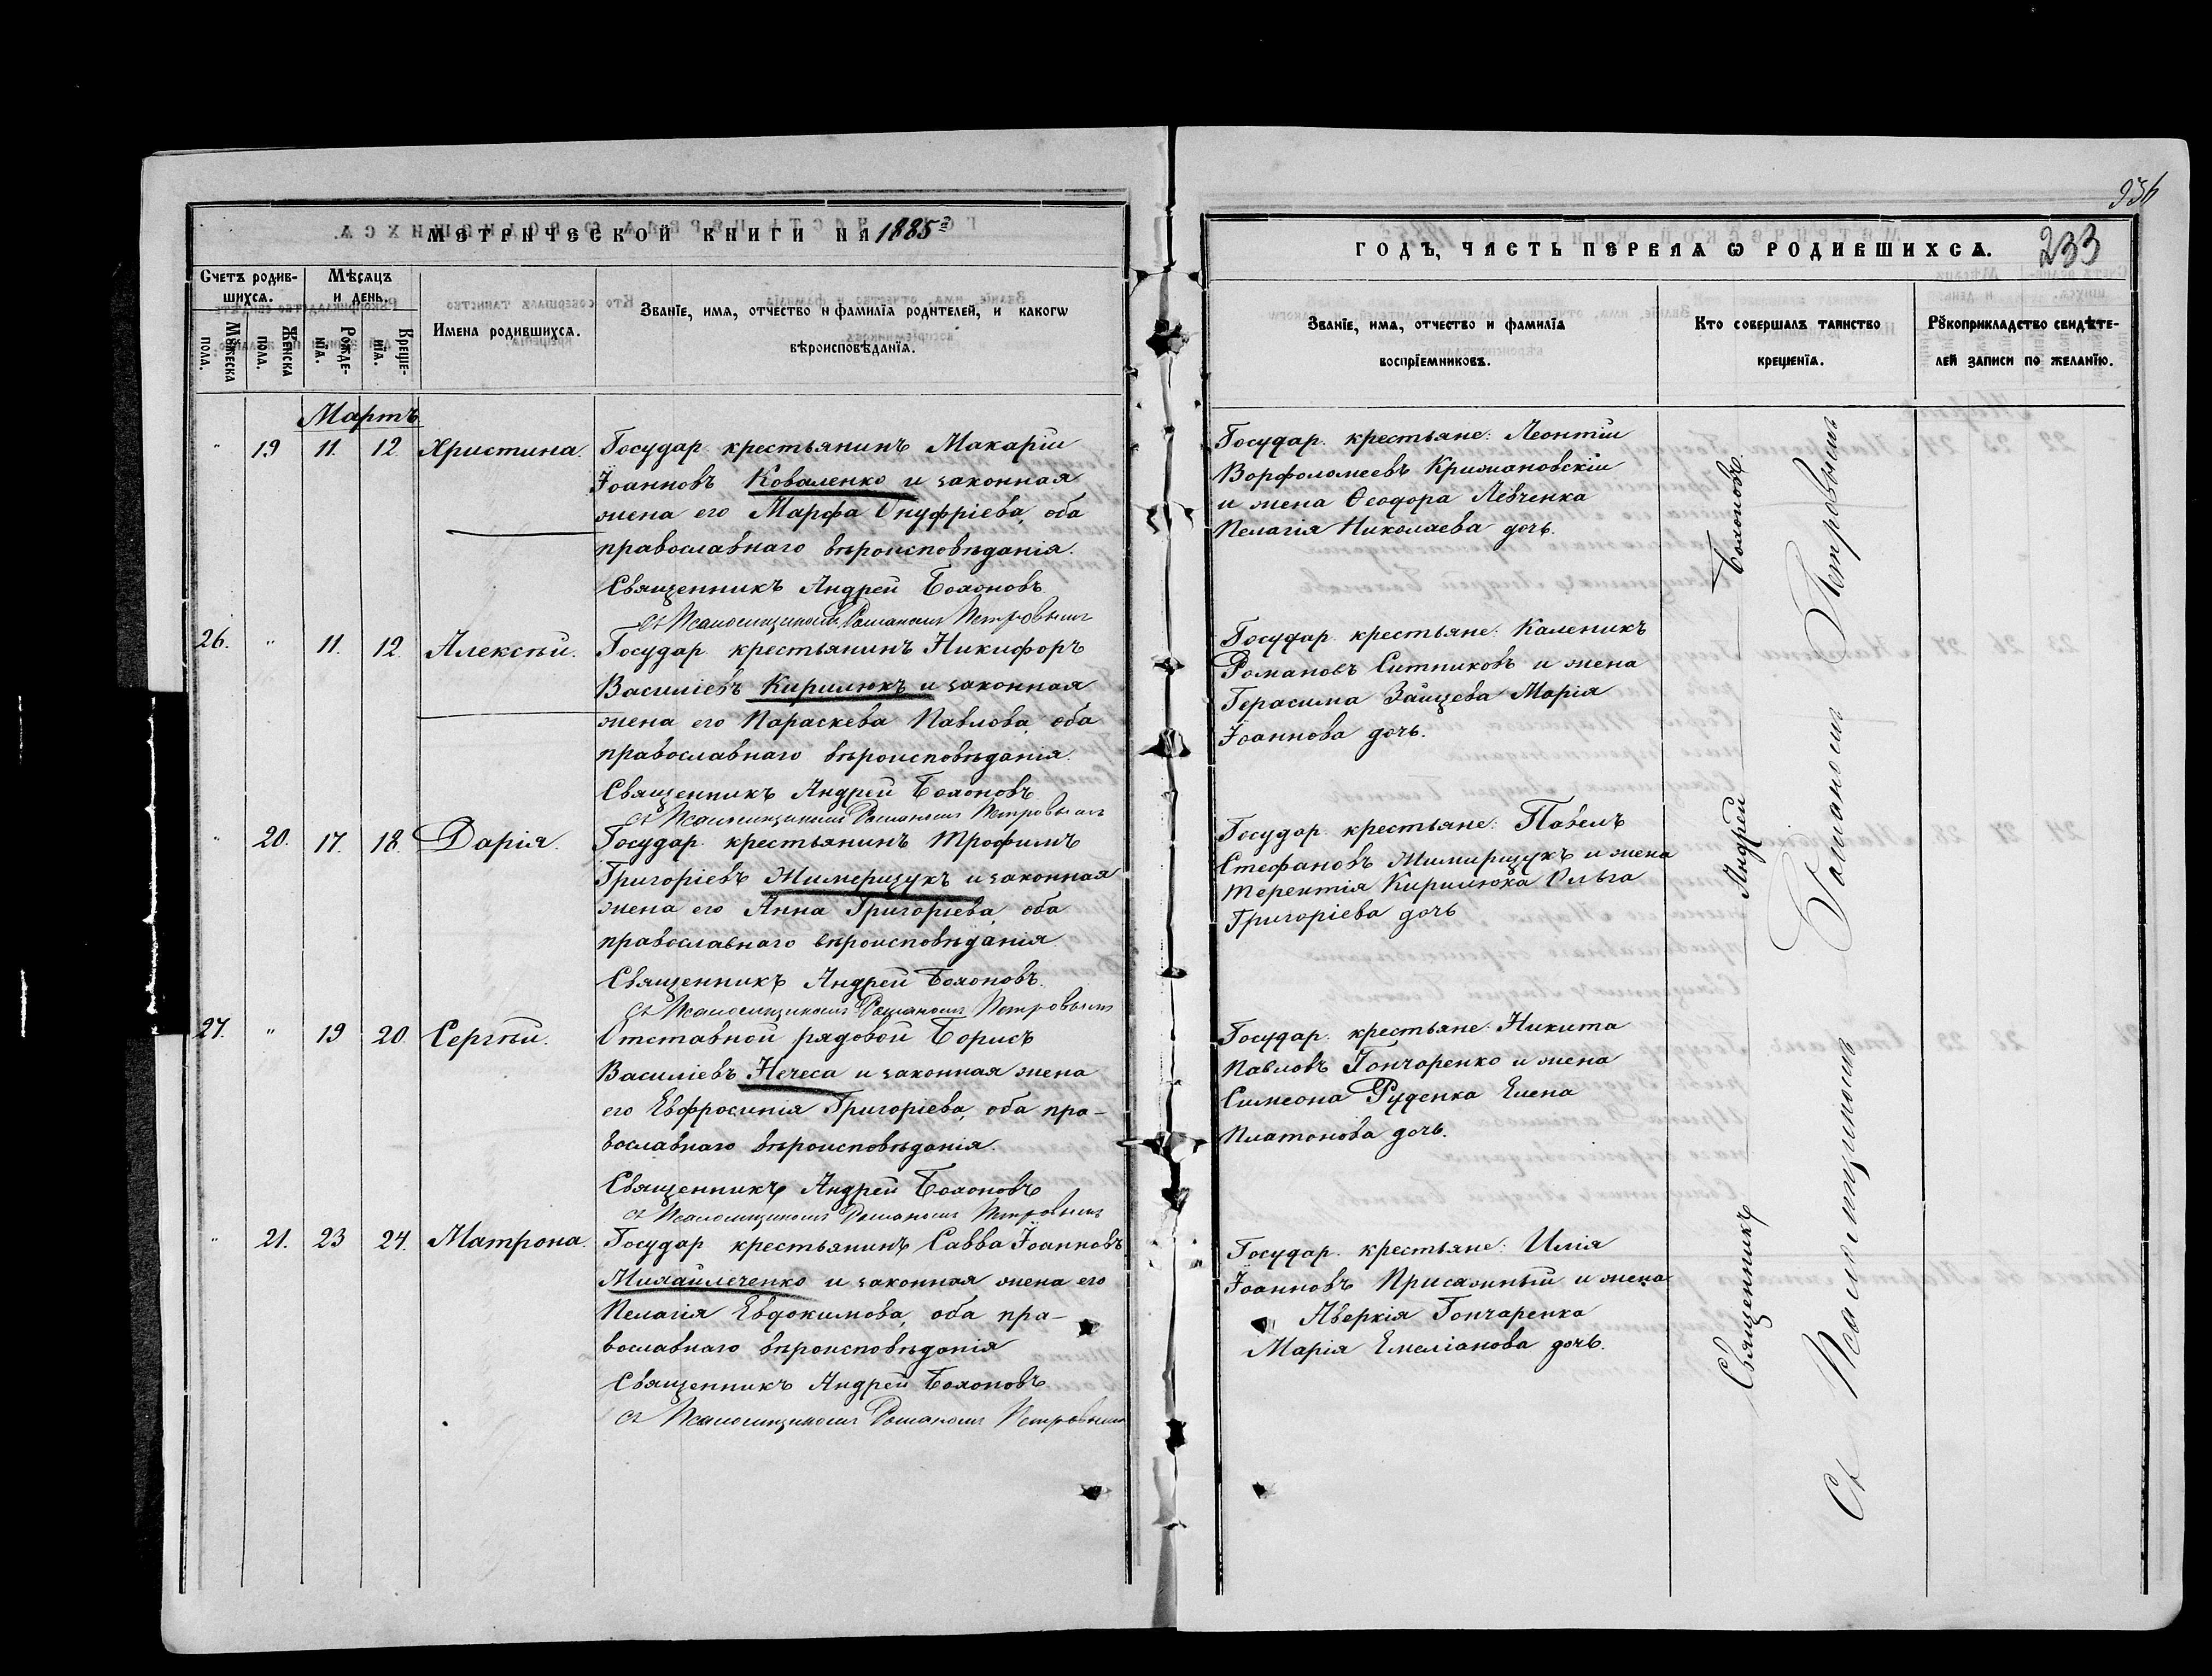 936
МЕТРИЧЕСКОЙ КНИГИ НА 1885 й
Счетъ родив-
шихсѧ.
Мѣсѧцъ
и день.
Мꙋжеска
пола.
Женска
пола.
Рожде-
нїѧ.
Креще-
нїѧ.
Имена родившихсѧ.
Званїе, имѧ, отчество и фамилїѧ родителей, и какогѡ
вѣроисповѣданїѧ.
Мартъ
" 19 11. 12. Христина.
Государ. крестьянинъ Макарій
Іоанновъ Коваленко и законная
жена его Марфа Онуфріева, оба
православнаго вѣроисповѣданія.
Священникъ Андрей Бохоновъ
съ Псаломщикомъ Романомъ Петровымъ
26. " 11. 12. Алексѣй.
Государ. крестьянинъ Никифоръ
Василіевъ Кирилюкъ и законная
жена его Параскева Павлова, оба
православнаго вѣроисповѣданія.
Священникъ Андрей Бохоновъ
съ Псаломщикомъ Романомъ Петровымъ
" 20. 17. 18. Дарія.
Государ. крестьянинъ Трофимъ
Григоріевъ Жимерищукъ и законная
жена его Анна Григоріева, оба
православнаго вѣроисповѣданія.
Священникъ Андрей Бохоновъ.
съ Псаломщикомъ Романомъ Петровымъ
27. " 19 20. Сергѣй.
Отставной рядовой Борисъ
Василіевъ Нечеса и законная жена
его Евфросинія Григоріева, оба пра-
вославнаго вѣроисповѣданія.
Священникъ Андрей Бохоновъ
съ Псаломщикомъ Романомъ Петровымъ
" 21. 23 24. Матрона.
Государ. крестьянинъ Савва Іоанновъ
Михайлеченко и законная жена его
Пелагія Евдокимова, оба пра-
вославнаго вѣроисповѣданія
Священникъ Андрей Бохоновъ
съ Псаломщикомъ Романомъ Петровымъ
ГОДЪ, ЧАСТЬ ПЕРВАѦ Ѡ РОДИВШИХСѦ.
233
Званїе, имѧ, отчество и фамилїѧ
воспрїемниковъ.
Кто совершалъ таинство
крещенїѧ.
Рꙋкоприкладство свидѣте-
лей записи по желанїю.
Государ. крестьяне: Леонтій
Ворфоломеевъ Кримановскій
и жена Ѳеодора Левченка
Пелагія Николаева дочь.
Государ. крестьяне: Каленикъ
Романовъ Ситниковъ и жена
Герасима Зайцева Марія
Іоаннова дочь.
Государ. крестьяне: Павелъ
Стефановъ Жимирищукъ и жена
Терентія Кирилюка Ольга
Григоріева дочь
Государ. крестьяне: Никита
Павловъ Гончаренко и жена
Симеона Руденка Елена
Платонова дочь.
Государ. крестьяне: Илія
Іоанновъ Присяжный и жена
Аверкія Гончаренка
Марія Емеліанова дочь.
Священникъ Андрей Бохоновъ
Съ Псаломщикомъ Романомъ Петровымъ